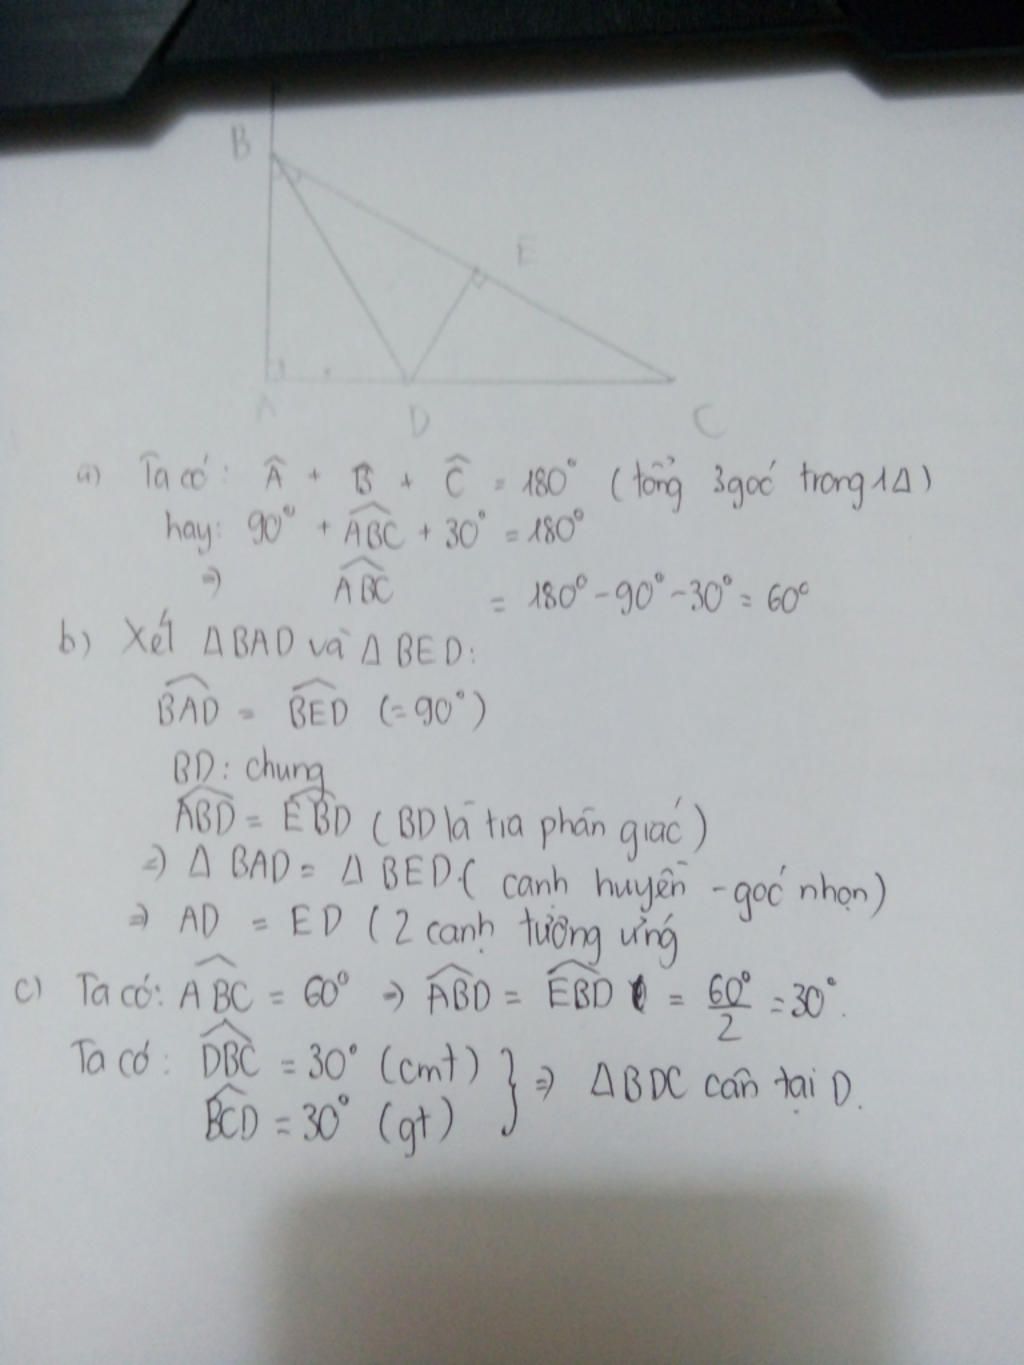 B
E
A
D
C
a) Ta có: Â + B̂ + Ĉ = 180° (tổng 3 góc trong 1Δ)
hay: 90° + \widehat{ABC} + 30° = 180°
⇒ \widehat{ABC} = 180° - 90° - 30° = 60°
b) Xét ΔBAD và ΔBED:
\widehat{BAD} = \widehat{BED} (= 90°)
BD: chung
\widehat{ABD} = \widehat{EBD} (BD là tia phân giác)
⇒ Δ BAD = Δ BED. (cạnh huyền - góc nhọn)
⇒ AD = ED (2 cạnh tương ứng
c) Ta có: \widehat{ABC} = 60° ⇒ \widehat{ABD} = \widehat{EBD} = \frac{60°}{2} = 30°.
Ta có: \widehat{DBC} = 30° (cmt) } ⇒ ΔBDC cân tại D.
\widehat{BCD} = 30° (gt)